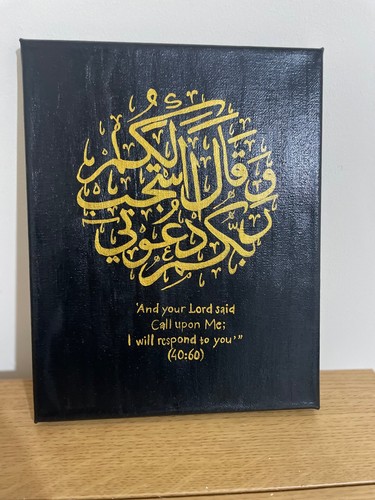 وَقَالَ رَبُّكُمْ ادْعُونِي أَسْتَجِبْ لَكُمْ
'And your Lord said
Call upon Me;
I will respond to you'"
(40:60)